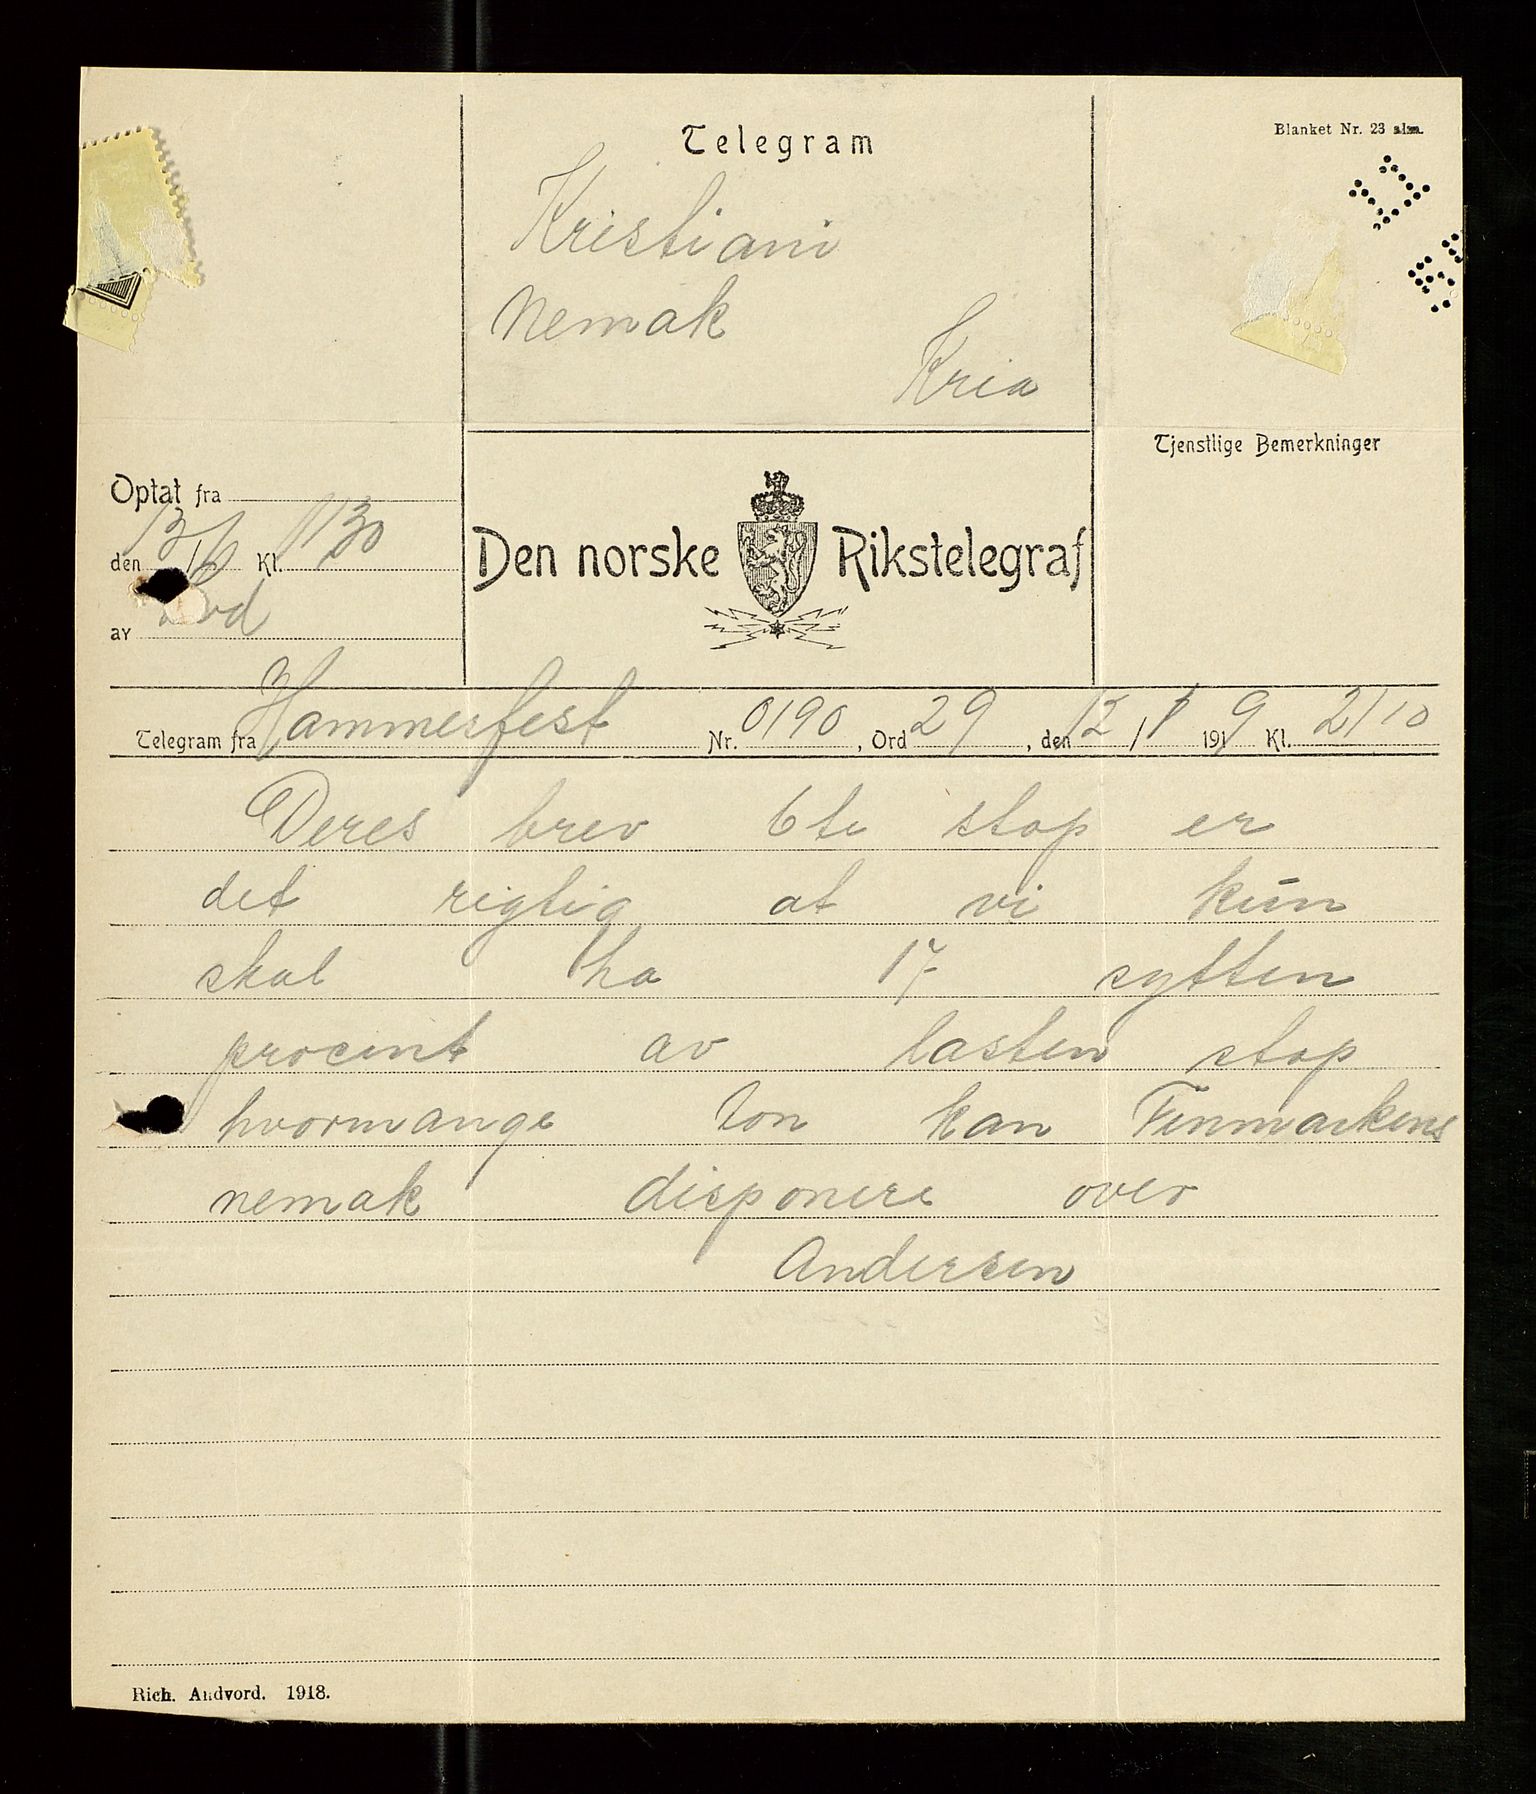 Telegram
Blanket Nr. 23 alm.
Kristiani
Nemak
Kria
Tjenstlige Bemerkninger
Optat fra
den 13/6 Kl. 1130
av
Den norske Rikstelegraf
Telegram fra Hammerfest Nr. 0190, Ord 29, den 12/ 1919 Kl. 2110
Deres brev 6te stop er
det rigtig at vi kun
skal ha 17 sytten
procent av lasten stop
hvormange ton kan Finmarkens
nemak disponere over
Andersen
Rich. Andvord. 1918.